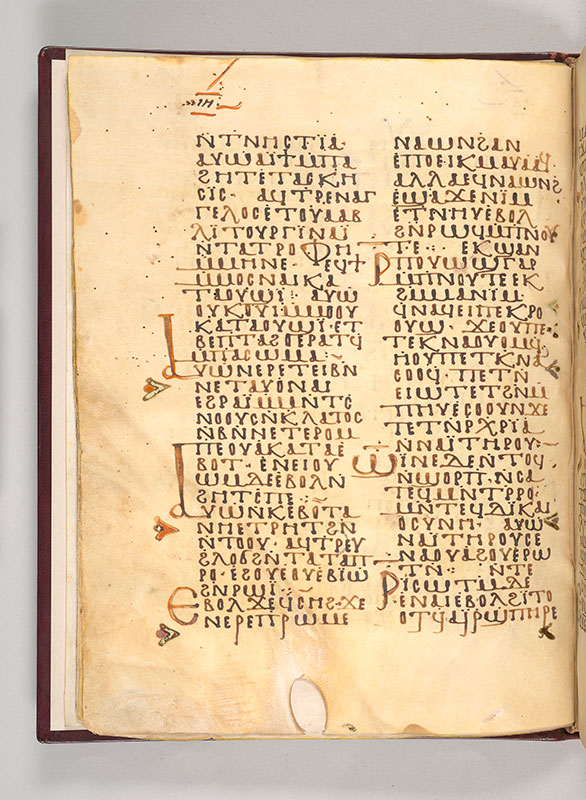 ⲓⲏ
ⲛ̄ⲧⲛⲏⲥⲧⲓ̈ⲁ·
ⲁⲩⲱⲁϥϯⲙ̄ⲡⲁ
ϩⲏⲧⲉⲧⲁⲥⲕⲏ
ⲥⲓ̈ⲥ· ⲁϥⲧⲣⲉⲛⲁⲅ
ⲅⲉⲗⲟⲥⲉⲧⲟⲩⲁⲁⲃ
ⲗⲓ̈ⲧⲟⲩⲣⲅⲓⲛⲁⲓ̈
ⲛ̄ⲧⲁⲧⲣⲟⲫⲏ
ⲙ̄ⲙⲏⲛⲉ· ⲉϥϯ
ⲙ̄ⲙⲟⲥⲛⲁⲓ̈ⲕⲁ
ⲧⲁⲟⲩϣⲓ̈· ⲁⲩⲱ
ⲟⲩⲕⲟⲩⲓ̈ⲙ̄ⲙⲟⲟⲩ
ⲕⲁⲧⲁⲟⲩϣⲓ̈· ⲉⲧ
ⲃⲉⲡⲧⲁϩⲟⲉⲣⲁⲧϥ
ⲙ̄ⲡⲁⲥⲱⲙⲁ·
ⲁⲩⲱⲛⲉⲣⲉⲧⲉⲓⲃⲛ̄
ⲛⲉⲧⲁⲩⲟⲛⲁⲓ̈
ⲉϩⲣⲁⲓ̈ⲙ̄ⲙⲛ̄ⲧⲥ
ⲛⲟⲟⲩⲥⲛ̄ⲕⲗⲁⲧⲟⲥ
ⲛ̄ⲃⲛ̄ⲛⲉⲧⲉⲣⲟⲙ
ⲡⲉⲟⲩⲁⲕⲁⲧⲁⲉ
ⲃⲟⲧ· ⲉⲛⲉⲓⲟⲩ
ⲱⲙⲇⲉⲉⲃⲟⲗⲛ̄
ϩⲏⲧⲉⲡⲉ:
ⲁⲩⲱⲛⲕⲉⲃⲟⲧⲁ
ⲛⲏⲉⲧⲣⲏⲧϩⲛ̄
ⲛ̄ⲧⲟⲟⲩ· ⲁϥⲧⲣⲉⲩ
ϩⲗⲟϭⲛ̄ⲧⲁⲧⲁⲡ
ⲣⲟ· ⲉϩⲟⲩⲉⲟⲩⲉⲃⲓ̈ⲱ
ϩⲛ̄ⲣⲱⲓ̈:
ⲉⲃⲟⲗϫⲉϥⲥⲏϩ·ϫⲉ
ⲉⲛⲉⲣⲉⲡⲣⲱⲙⲉ
ⲛⲁⲱⲛϩⲁⲛ
ⲉⲡⲟⲉⲓⲕⲙⲁⲩⲁⲁϥ
ⲁⲗⲗⲁⲉϥⲛⲁⲱⲛϩ
ⲉϣⲁϫⲉⲛⲓⲙ
ⲉⲧⲛⲏⲩⲉⲃⲟⲗ
ϩⲛ̄ⲣⲱϥⲙ̄ⲡⲛⲟⲩ
ⲧⲉ: ⲉⲕϣⲁⲛ
ⲣ̄ⲡⲟⲩⲱϣⲅⲁⲣ
ⲙ̄ⲡⲛⲟⲩⲧⲉⲉⲕ
ϩⲙ̄ⲙⲁⲛⲓⲙ
ϥⲛⲁϥⲉⲓⲡⲉⲕⲣⲟ
ⲟⲩϣ· ϫⲉⲟⲩⲡⲉ
ⲧⲉⲕⲛⲁⲟⲩⲟⲙϥ
ⲙ̄ⲟⲩⲡⲉⲧⲕⲛⲁ
ⲥⲟⲟϥ· ⲡⲉⲧⲛ̄
ⲉⲓⲱⲧⲉⲧϩⲛ̄ⲙ
ⲡⲏⲩⲉⲥⲟⲟⲩⲛϫⲉ
ⲧⲉⲧⲛ̄ⲣⲭⲣⲓ̈ⲁ
ⲛ̄ⲛⲁⲓ̈ⲧⲏⲣⲟⲩ:
ϣⲓⲛⲉⲇⲉⲛ̄ⲧⲟϥ
ⲛ̄ϣⲟⲣⲡ̄·ⲛ̄ⲥⲁ
ⲧⲉϥⲙⲛ̄ⲧⲣ̄ⲣⲟ:
ⲙⲛ̄ⲧⲉϥⲇⲓⲕⲁⲓ
ⲟⲥⲩⲛⲏ· ⲁⲩⲱ
ⲛⲁⲓ̈ⲧⲏⲣⲟⲩⲥⲉ
ⲛⲁⲟⲩⲁϩⲟⲩⲉⲣⲱ
ⲧⲛ̄: ⲛ̄ⲧⲉ
ⲣⲓⲥⲱⲧⲙ̄ⲇⲉ
ⲉⲛⲁⲓ̈ⲉⲃⲟⲗϩⲓ̈ⲧⲟ
ⲟⲧϥ̄ⲁⲓ̈ⲣ̄ϣⲡⲏⲣⲉ